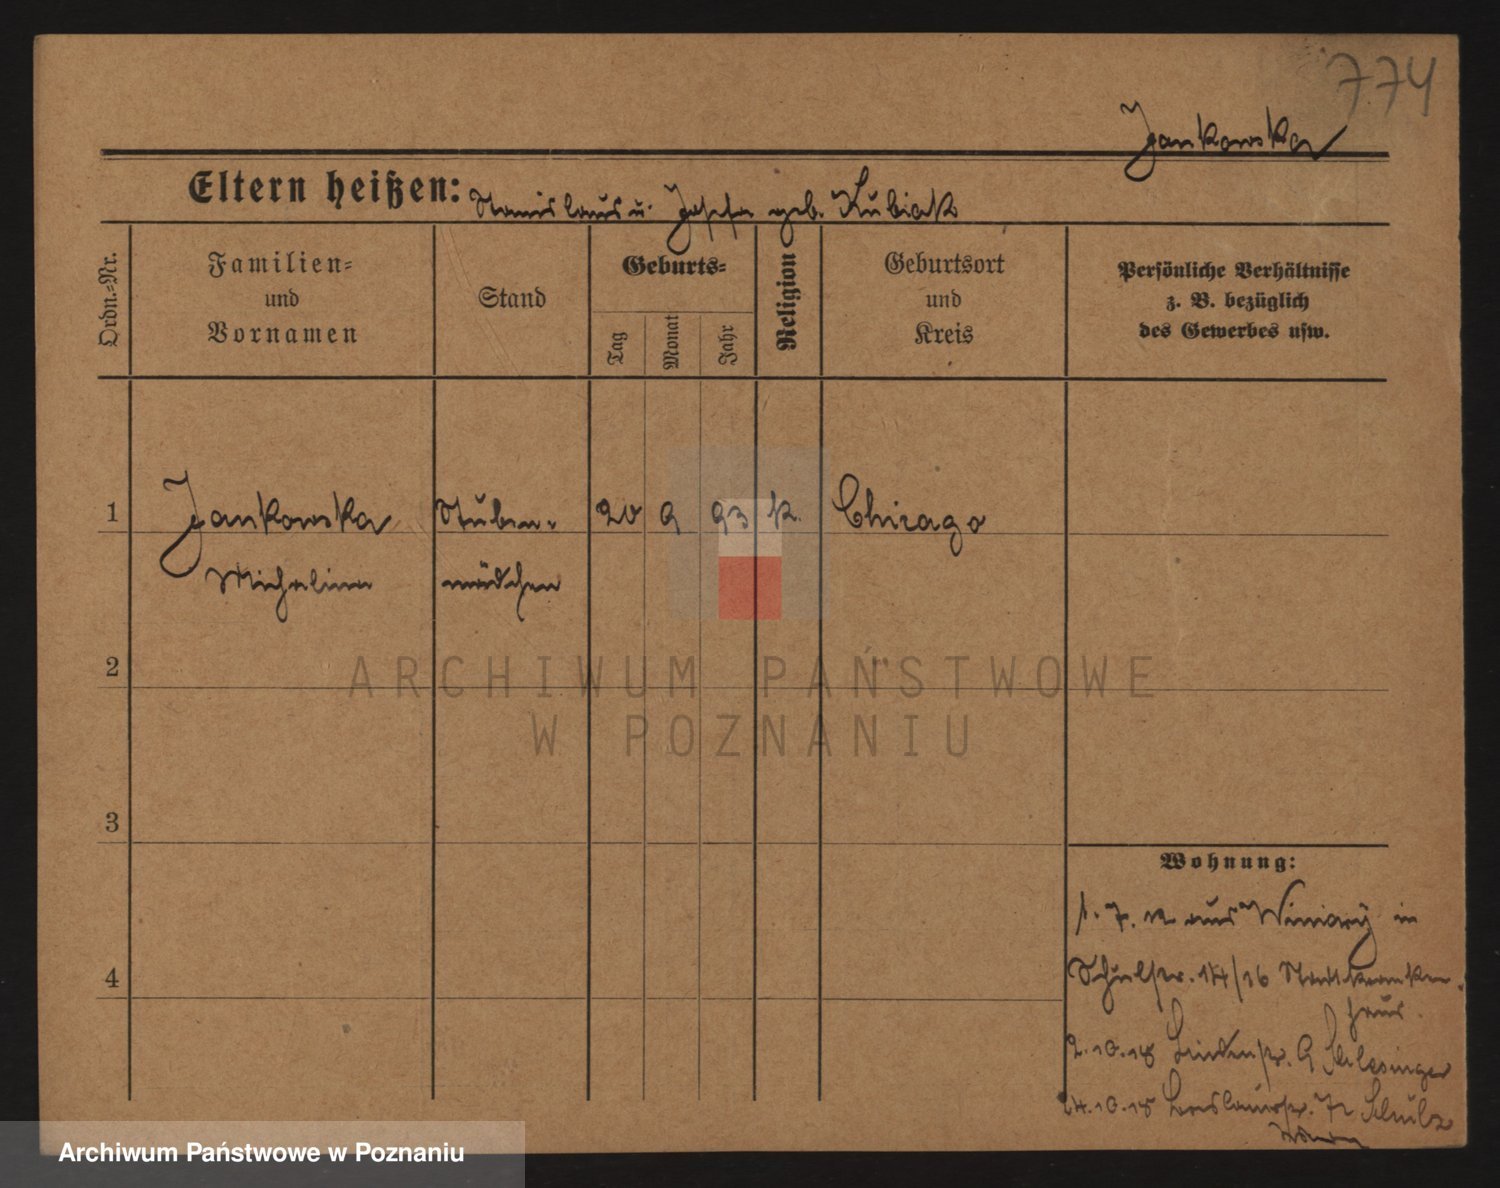 774
Jankowska
Eltern heißen: Stanislaus u. Josefa geb. Kubiak
Ordn.-Nr.
Familien-
und
Vornamen
Stand
Geburts-
Tag
Monat
Jahr
Religion
Geburtsort
und
Kreis
Persönliche Verhältnisse
z. B. bezüglich
des Gewerbes usw.
1 Jankowska Stuben- 20 9 93 k. Chicago
Michalina mädchen
2
ARCHIWUM PAŃSTWOWE
W POZNANIU
3
Wohnung:
1. 7. 12 aus Winiary in
Schulstr. 14/16 Stadtkranken-
haus.
4
2.10.18 Lindenstr. 9 Schlesinger
24.10.18 Breslauerstr. Schulz
Archiwum Państwowe w Poznaniu